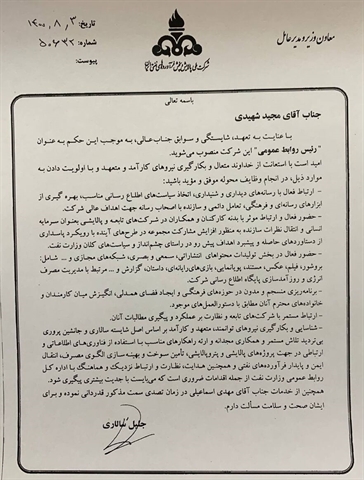 معاون وزیر و مدیرعامل
تاریخ: ۱۴۰۰،۸،۳
شماره: ۵۰۶۳۲
پیوست:
باسمه تعالی
جناب آقای مجید شهیدی
با عنایت به تعهد، شایستگی و سوابق جناب‌عالی، به موجب این حکم به عنوان
"رئیس روابط عمومی" این شرکت منصوب می‌شوید.
امید است با استعانت از خداوند متعال و بکارگیری نیروهای کارآمد و متعهد و با اولویت دادن به
موارد ذیل، در انجام وظایف محوله موفق و مؤید باشید:
- ارتباط فعال با رسانه‌های دیداری و شنیداری، اتخاذ سیاست‌های اطلاع رسانی مناسب، بهره گیری از
ابزارهای رسانه‌ای و فرهنگی، تعامل دائمی و سازنده با اصحاب رسانه جهت اهداف عالی شرکت.
- حضور فعال و ارتباط موثر با بدنه کارکنان و همکاران در شرکت‌های تابعه و پالایشی بعنوان سرمایه
انسانی و انتقال نظرات سازنده به منظور افزایش مشارکت مجموعه در طرح‌های آینده با رویکرد پاسداری
از دستاوردهای حاصله و پیشبرد اهداف پیش رو در راستای چشم‌انداز و سیاست‌های کلان وزارت نفت.
- حضور فعال در بخش تولیدات محتواهای انتشاراتی، سمعی و بصری، شبکه‌های مجازی و ... شامل:
بروشور، فیلم، عکس، مستند، پویانمایی، بازی‌های رایانه‌ای، داستان، گزارش و ... مرتبط با مدیریت مصرف
انرژی و روزآمدسازی پایگاه اطلاع رسانی شرکت.
- برنامه‌ریزی منسجم و مدون در حوزه‌های فرهنگی و ایجاد فضای همدلی، انگیزش میان کارمندان و
خانواده‌های محترم آنان مطابق با دستورالعمل‌های موجود.
- ارتباط مستمر با شرکت‌های تابعه و نظارت بر عملکرد و پیگیری مطالبات آنان.
- شناسایی و بکارگیری نیروهای توانمند، متعهد و کارآمد بر اساس اصل شایسته سالاری و جانشین پروری
بی‌تردید تلاش مستمر و همکاری مجدانه و ارئه راهکارهای مناسب با استفاده از فناوری‌های اطلاعاتی و
ارتباطی در جهت پروژه‌های پالایشی و پتروپالایشی، تأمین سوخت و بهینه‌سازی الگوی مصرف، انتقال
ایمن و پایدار فرآورده‌های نفتی و همچنین هدایت، نظارت و ارتباط نزدیک و هماهنگ با اداره کل
روابط عمومی وزارت نفت از جمله اقدامات ضروری است که می‌بایست با جدیت بیشتری پیگیری شود.
همچنین از خدمات جناب آقای مهدی اسماعیلی در زمان تصدی سمت مذکور قدردانی نموده و برای
ایشان صحت و سلامت مسألت دارم.
جلیل سالاری